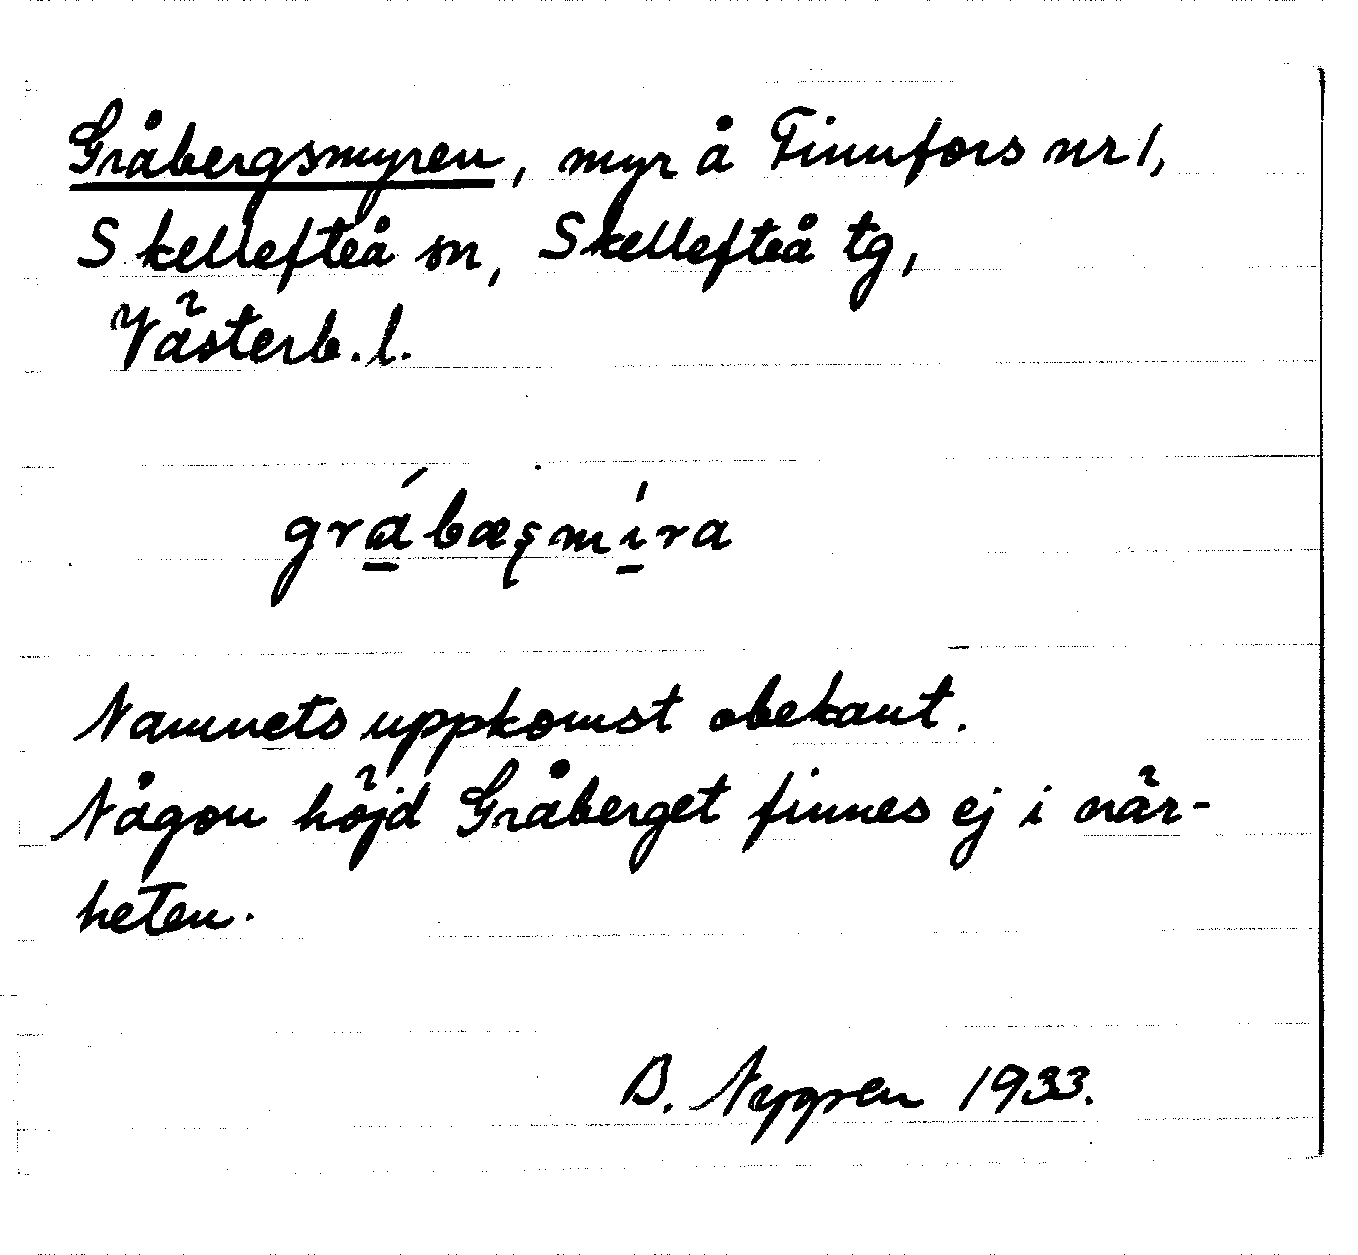 Gråbergsmyren, myr å Finnfors nr 1,
Skellefteå sn, Skellefteå tg,
Västerb. l.
grá̱bæʂmí̱ra
Namnets uppkomst obekant.
Någon höjd Gråberget finnes ej i när-
heten.
B. Nygren 1933.